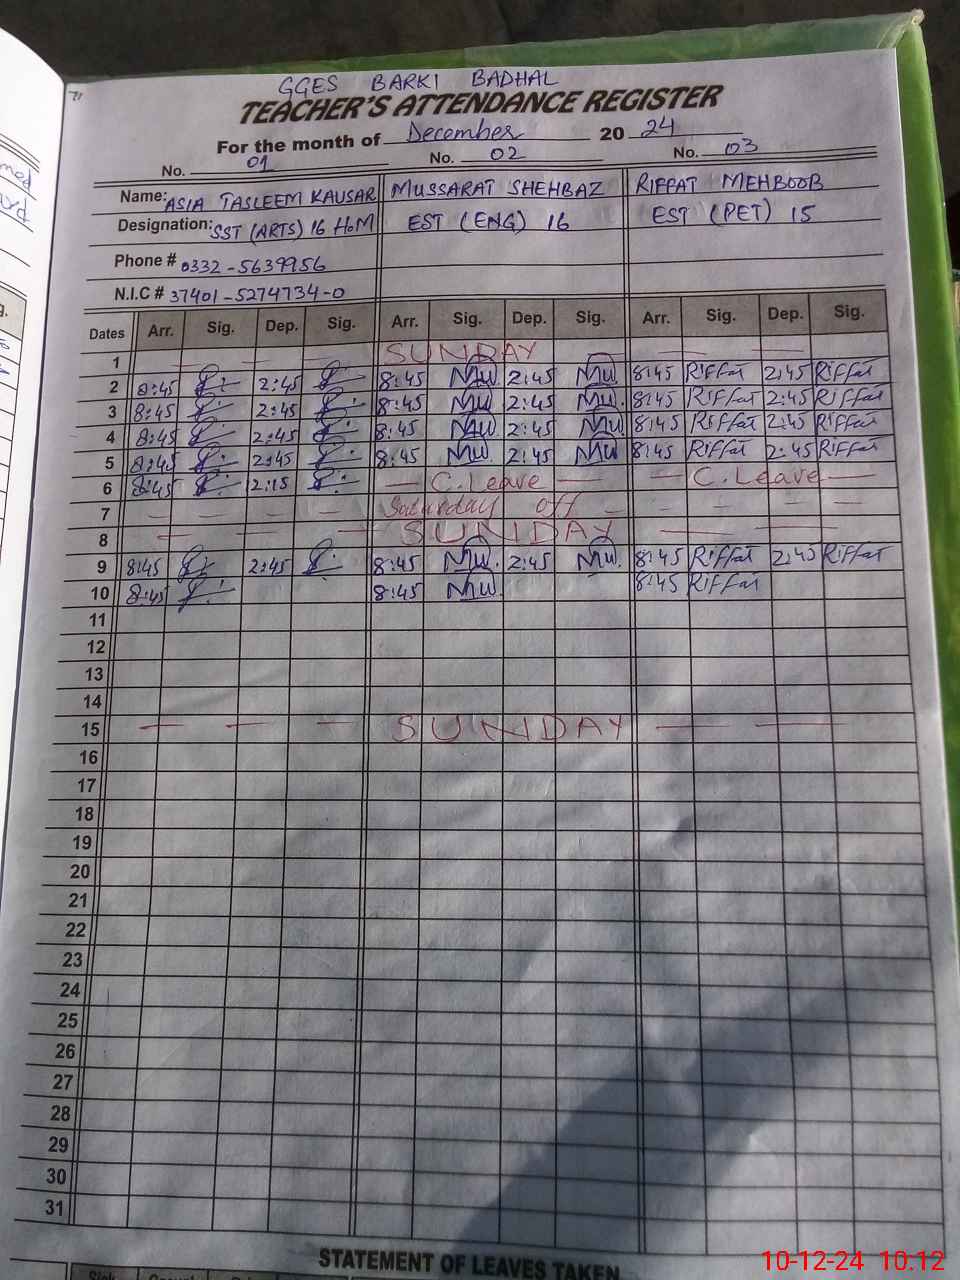 GGES BARKI BADHAL
TEACHER'S ATTENDANCE REGISTER
For the month of December 20 24
No. 01 No. 02 No. 03
Name: ASIA TASLEEM KAUSAR MUSSARAT SHEHBAZ RIFFAT MEHBOOB
Designation: SST (ARTS) 16 H.M EST (ENG) 16 EST (PET) 15
Phone # 0332-5639956
N.I.C # 37401-5274734-0
Dates Arr. Sig. Dep. Sig. Arr. Sig. Dep. Sig. Arr. Sig. Dep. Sig.
1 — — — SUNDAY — —
2 8:45 2:45 8:45 Mu 2:45 Mu 8:45 Riffat 2:45 Riffat
3 8:45 2:45 8:45 Mu 2:45 Mu. 8:45 Riffat 2:45 Riffat
4 8:45 2:45 8:45 Mu 2:45 Mu 8:45 Riffat 2:45 Riffat
5 8:45 2:45 8:45 Mu 2:45 Mu 8:45 Riffat 2:45 Riffat
6 8:45 2:15 — C. Leave — — C. Leave —
7 — — — — Saturday off — — — —
8 — — — SUNDAY — —
9 8:45 2:45 8:45 Mu. 2:45 Mu. 8:45 Riffat 2:45 Riffat
10 8:45 8:45 Mu 8:45 Riffat
11
12
13
14
15 — — — SUNDAY — —
16
17
18
19
20
21
22
23
24
25
26
27
28
29
30
31
STATEMENT OF LEAVES TAKEN
10-12-24 10:12